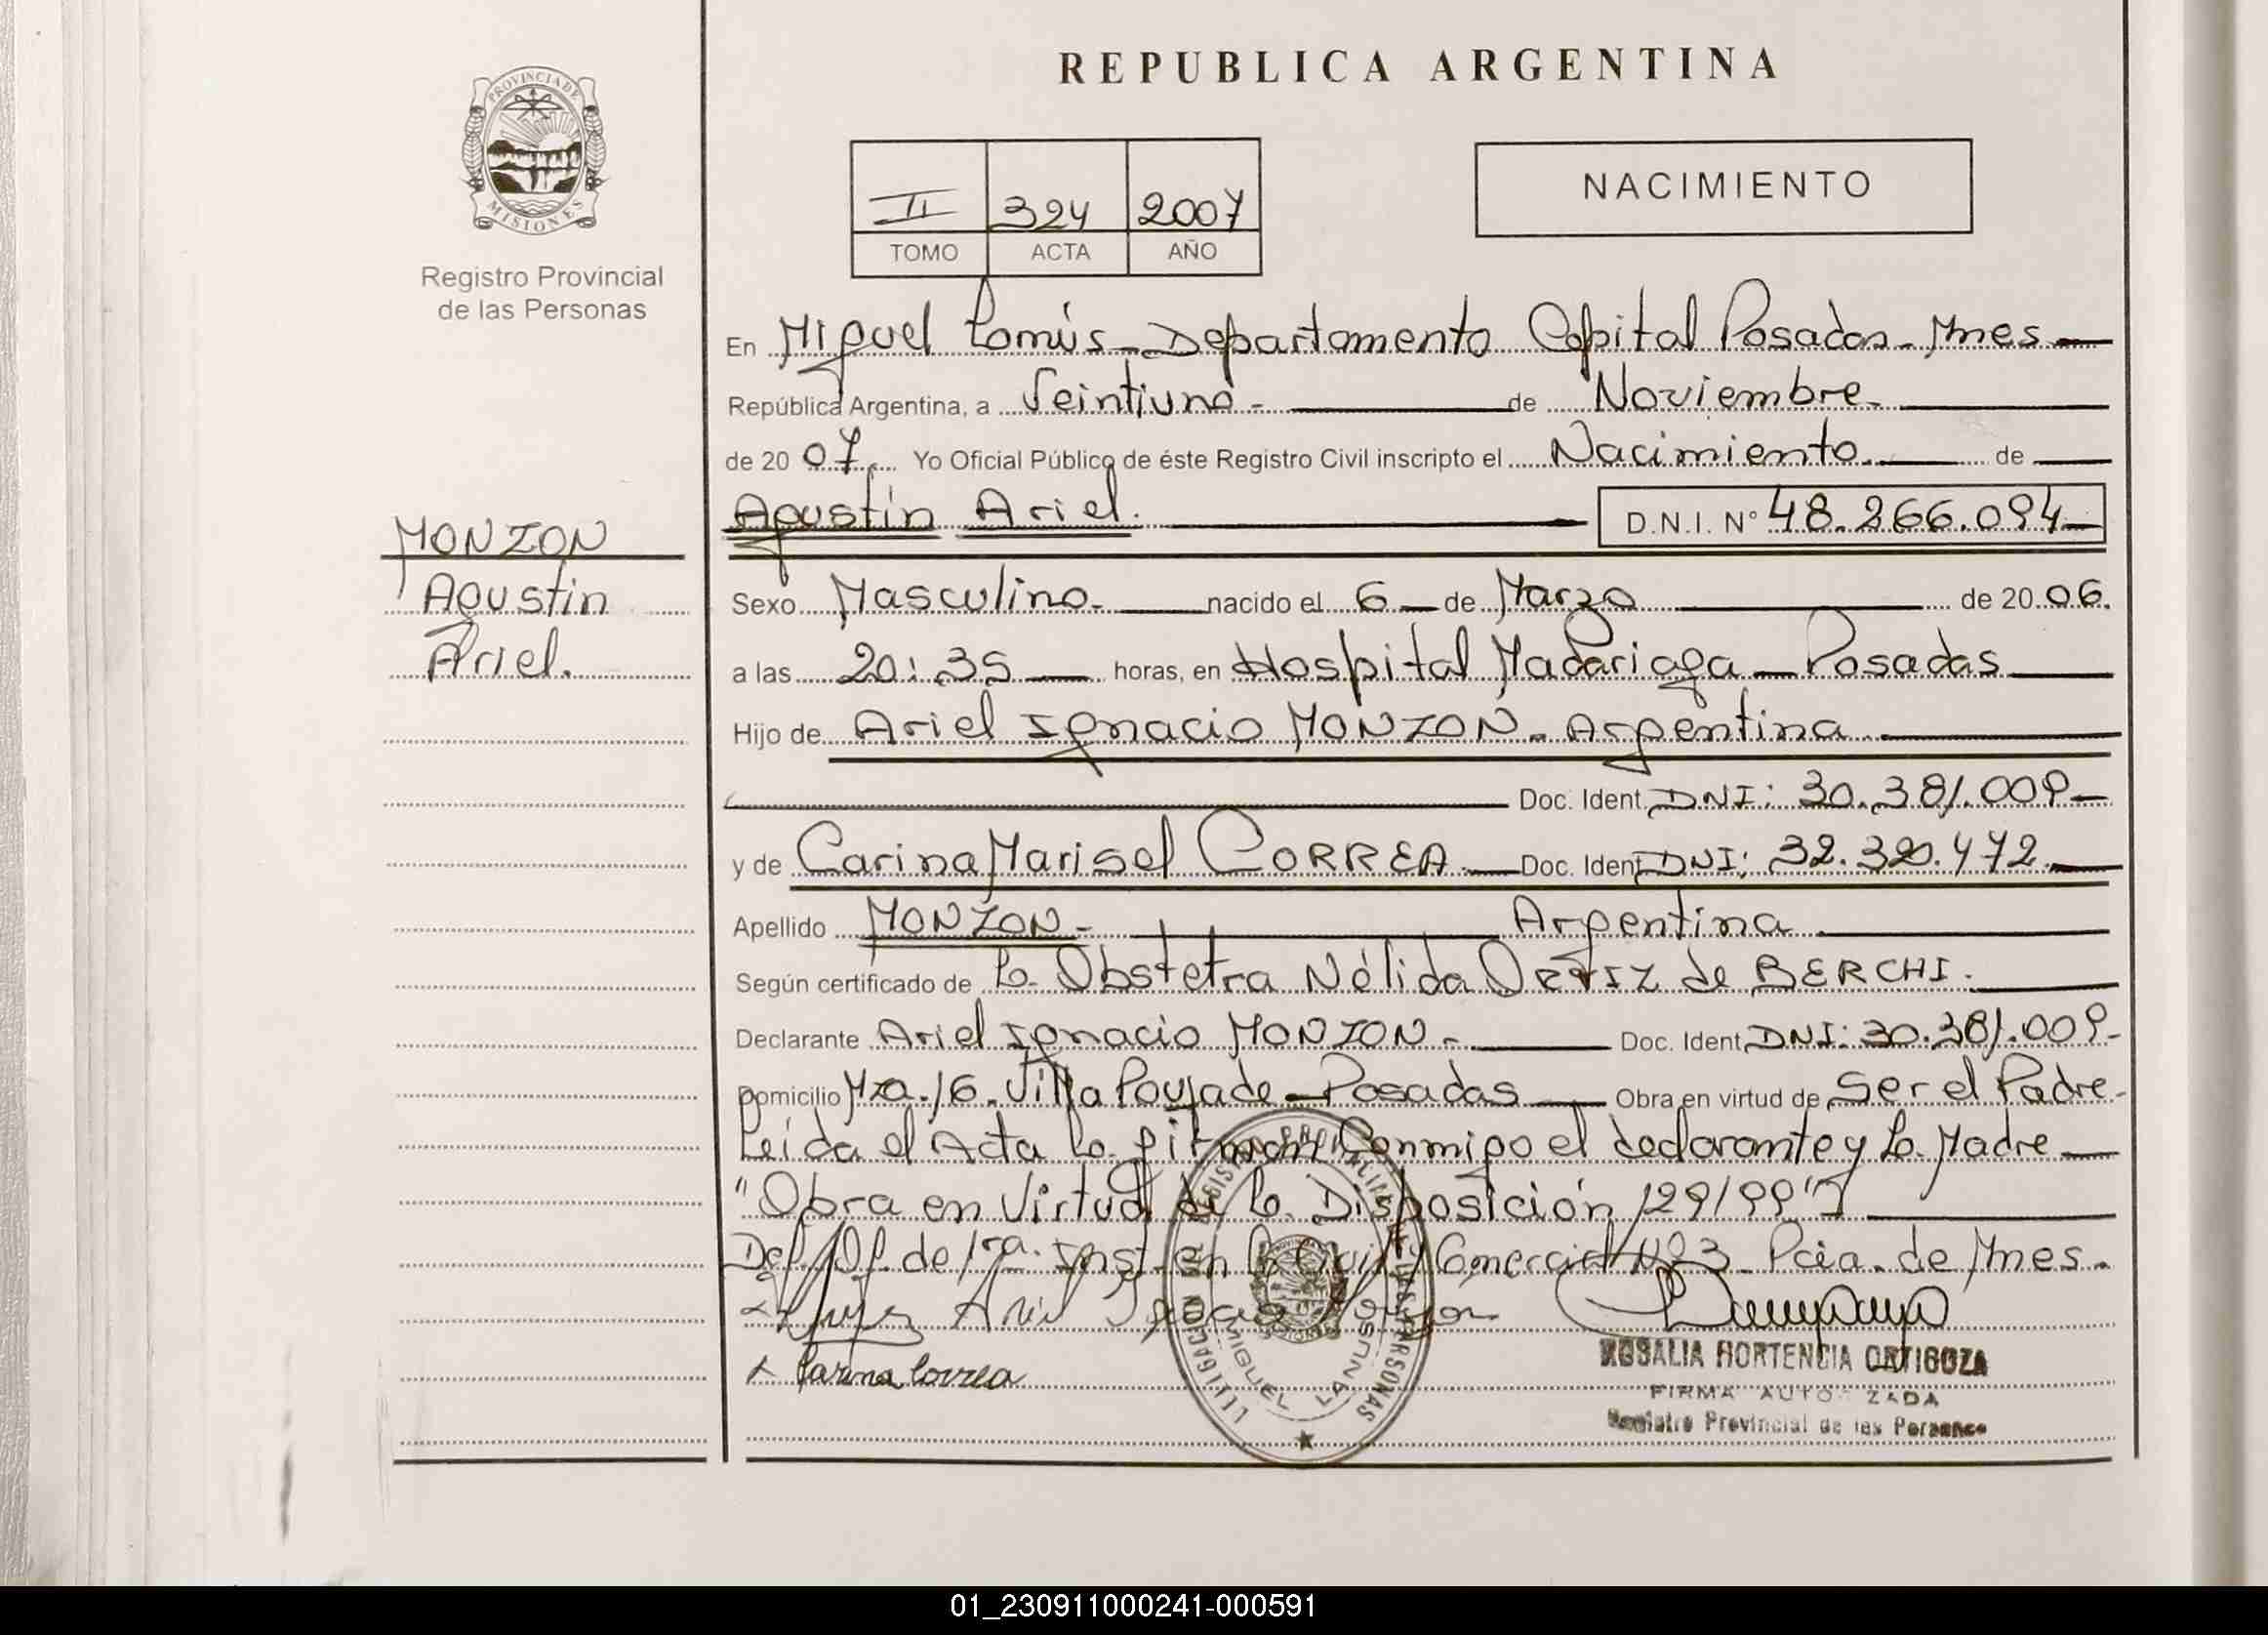 REPUBLICA ARGENTINA
PROVINCIA DE
MISIONES
Registro Provincial
de las Personas
II 324 2007
TOMO ACTA AÑO
NACIMIENTO
En Miguel Lanús - Departamento Capital Posadas - Mnes
República Argentina, a Veintiuno - de Noviembre
de 2007 Yo Oficial Público de éste Registro Civil inscripto el Nacimiento de
Agustin Ariel. D.N.I. N° 48.266.094
MONZON
Agustin
Ariel.
Sexo Masculino - nacido el 6 de Marzo de 2006.
a las 20:35 horas, en Hospital Madariaga - Posadas
Hijo de Ariel Ignacio MONZON - Argentina
Doc. Ident. DNI: 30.381.009
y de Carina Marisel CORREA Doc. Ident. DNI: 32.320.472
Apellido MONZON - Argentina
Según certificado de la Obstetra Nélida ORTIZ de BERCHI.
Declarante Ariel Ignacio MONZON - Doc. Ident. DNI: 30.381.009-
Domicilio Mza. 16. Villa Poujade - Posadas Obra en virtud de Ser el Padre-
Leída el Acta la firman Conmigo el declarante y la Madre
"Obra en Virtud de la Disposición 129/99"
Del de 1ra. Inst. en lo Civil y Comercial Nº 3 Pcia. de Mnes.
Ariel Ignacio
x Carina Correa
MIGUEL LANUS
ROSALIA HORTENCIA ORTIGOZA
FIRMA AUTORIZADA
Registro Provincial de las Personas
01_230911000241-000591